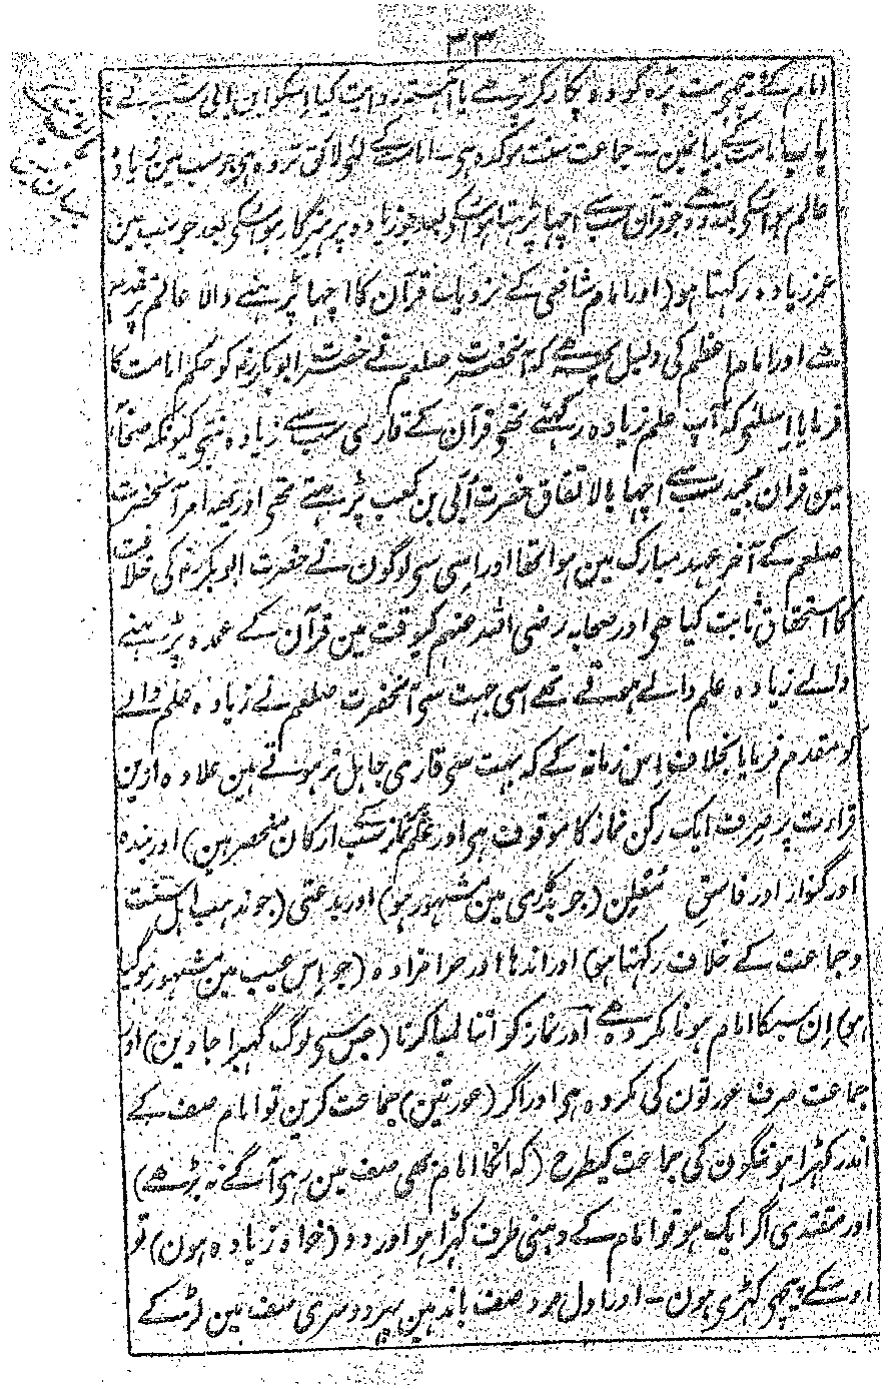 ٣٣
امام کے پیچھے مت پڑہ گو وہ پکار کر پڑہے یا آہستہ روایت کیا اسکو ابن ابی شیبہ نے
باب امامت کے بیانمین - جماعت سنت موکدہ ہی - امامت کے لئی لائق تر وہ ہی جو سب مین زیادہ
عالم ہو اسکی بعد وہ جو قرآن سب سے اچہا پڑہتا ہو اسکی بعد جو زیادہ پرہیزگار ہو اسکی بعد جو سب مین
عمر زیادہ رکہتا ہو (اور امام شافعی کے نزدیک قرآن کا اچہا پڑہنے والا عالم پر مقدم
ہے اور امام اعظم کی دلیل یہہ ہے کہ آنحضرت صلعم نے حضرت ابوبکر کو حکم امامت کا
فرمایا اسلئی کہ آپ علم زیادہ رکہتے تھی قرآن کے قاری سب سے زیادہ نتھی کیونکہ صحابہ
مین قرآن مجید سب سے اچہا بالاتفاق حضرت اُبَی بن کعب پڑہتے تھی اور یہہ امر آنحضرت
صلعم کے آخر عہد مبارک مین ہوا تھا اور اسی سی لوگون نے حضرت ابوبکر کی خلافت
کا استحقاق ثابت کیا ہی اور صحابہ رضی اللہ عنہم کیوقت مین قرآن کے عمدہ پڑہنے
والے زیادہ علم والے ہوتے تھے اسی جہت سی آنحضرت صلعم نے زیادہ علم والے
کو مقدم فرمایا بخلاف اِس زمانہ کے کہ بہت سی قاری جاہل تر ہوتے ہین علاوہ ازین
قراءت پر صرف ایک رکن نماز کا موقوف ہی اور علم پر نماز کے سب ارکان منحصر ہین) اور بندہ
اور گنوار اور فاسق مُعْلِن (جو بدی مین مشہور ہو) اور بدعتی (جو مذہب اہل سنت
وجماعت کے خلاف رکہتا ہو) اور اندہا اور حرامزادہ (جو اِس عیب مین مشہور ہوگیا
ہو) اِن سبکا امام ہونا مکروہ ہے اور نماز کو اتنا لمبا کرنا (جس سی لوگ گہبرا جاوین) اور
جماعت صرف عورتون کی مکروہ ہی اور اگر (عورتین) جماعت کرین تو امام صف کے
اندر کہڑا ہو ننگون کی جماعت کیطرح (کہ انکا امام بھی صف مین رہی آگے نہ بڑہے)
اور مقتدی اگر ایک ہو تو امام کے دہنی طرف کہڑا ہو اور دو (خواہ زیادہ ہون) تو
اوسکے پیچھی کہڑی ہون - اور اول مرد صف باندہین پہر دوسری صف مین لڑکے